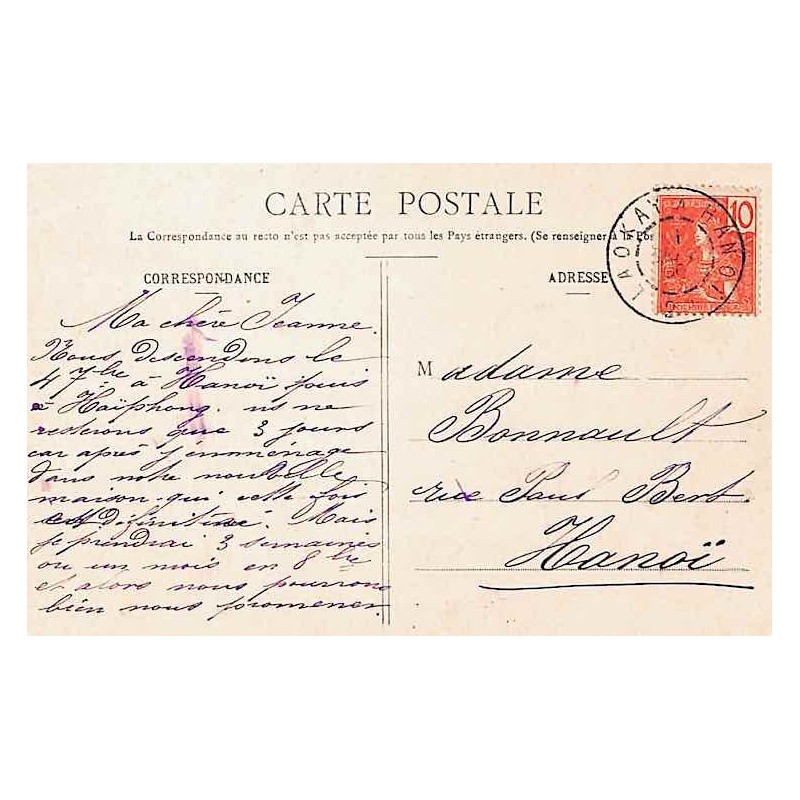 CARTE POSTALE
La Correspondance au recto n'est pas acceptée par tous les Pays étrangers. (Se renseigner à la Pos
CORRESPONDANCE
Ma chère Jeanne.
Nous descendons le
4 7bre à Hanoï puis
à Haïphong. ns ne
resterons que 3 jours
car après j'emménage
dans notre nouvelle
maison qui cette fois
est définitive. Mais
je prendrai 3 semaines
ou un mois en 8bre
et alors nous pourrons
bien nous promener
ADRESSE
10
LAOKAY A HANOI
Madame
Bonnault
rue Paul Bert.
Hanoï